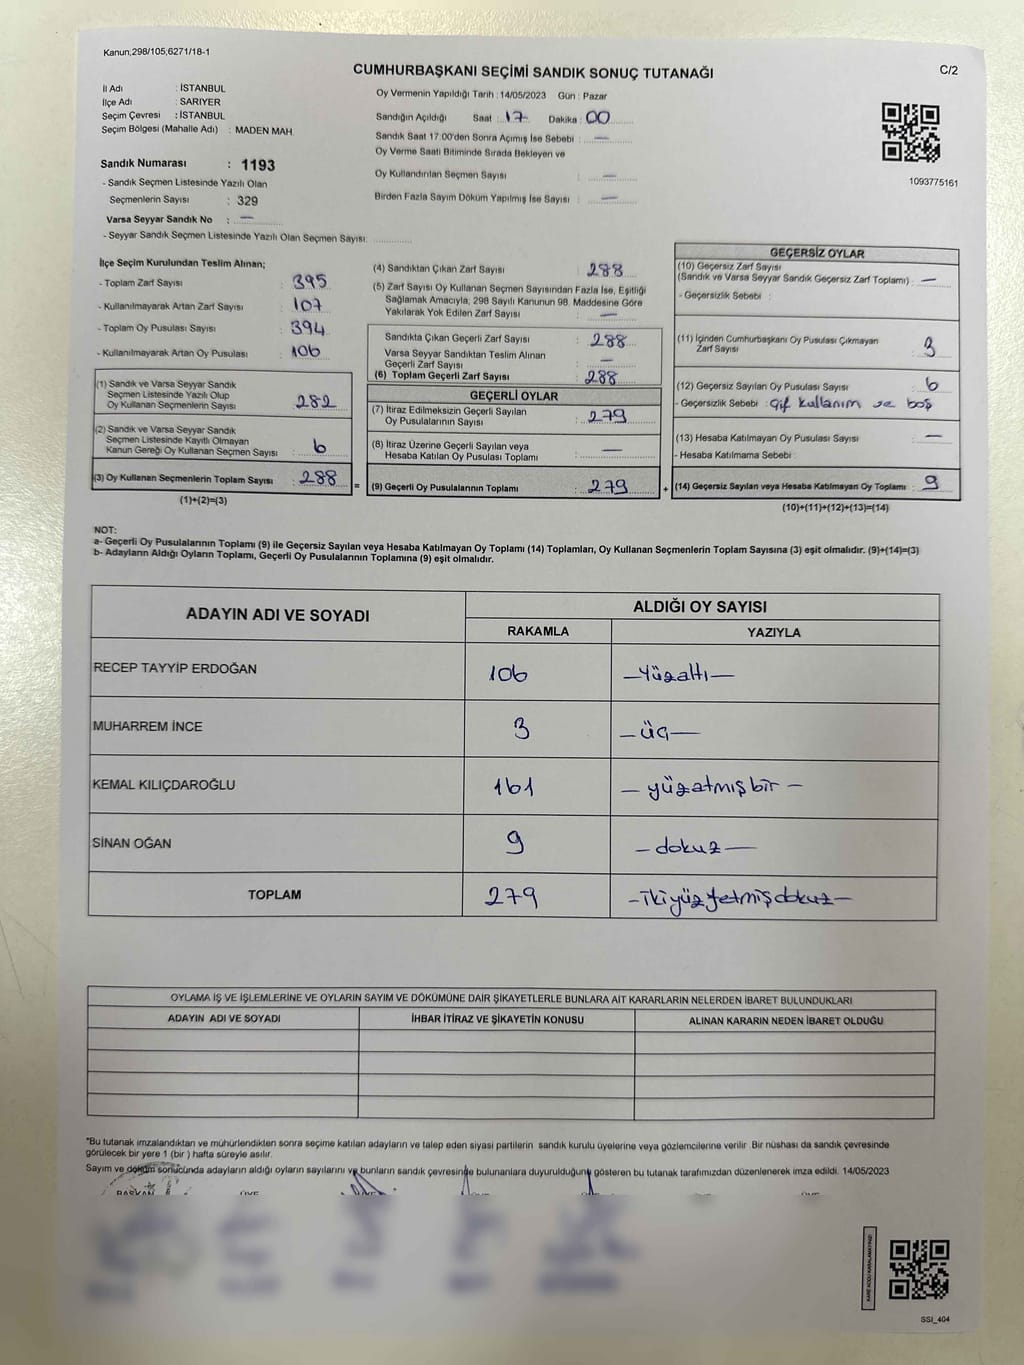 Kanun;298/105;6271/18-1
CUMHURBAŞKANI SEÇİMİ SANDIK SONUÇ TUTANAĞI
C/2
İl Adı : İSTANBUL
İlçe Adı : SARIYER
Seçim Çevresi : İSTANBUL
Seçim Bölgesi (Mahalle Adı) : MADEN MAH.
Oy Vermenin Yapıldığı Tarih : 14/05/2023 Gün : Pazar
Sandığın Açıldığı Saat : 17 Dakika : 00
Sandık Saat 17:00'den Sonra Açımış İse Sebebi : —
Oy Verme Saati Bitiminde Sırada Bekleyen ve
Oy Kullandırılan Seçmen Sayısı : —
Birden Fazla Sayım Döküm Yapılmış İse Sayısı : —
1093775161
Sandık Numarası : 1193
- Sandık Seçmen Listesinde Yazılı Olan
Seçmenlerin Sayısı : 329
Varsa Seyyar Sandık No : —
- Seyyar Sandık Seçmen Listesinde Yazılı Olan Seçmen Sayısı:
İlçe Seçim Kurulundan Teslim Alınan;
- Toplam Zarf Sayısı : 395
- Kullanılmayarak Artan Zarf Sayısı : 107
- Toplam Oy Pusulası Sayısı : 394
- Kullanılmayarak Artan Oy Pusulası : 106
(1) Sandık ve Varsa Seyyar Sandık
Seçmen Listesinde Yazılı Olup
Oy Kullanan Seçmenlerin Sayısı : 282
(2) Sandık ve Varsa Seyyar Sandık
Seçmen Listesinde Kayıtlı Olmayan
Kanun Gereği Oy Kullanan Seçmen Sayısı : 6
(3) Oy Kullanan Seçmenlerin Toplam Sayısı : 288
(1)+(2)=(3)
(4) Sandıktan Çıkan Zarf Sayısı : 288
(5) Zarf Sayısı Oy Kullanan Seçmen Sayısından Fazla İse, Eşitliği
Sağlamak Amacıyla, 298 Sayılı Kanunun 98. Maddesine Göre
Yakılarak Yok Edilen Zarf Sayısı : —
Sandıkta Çıkan Geçerli Zarf Sayısı : 288
Varsa Seyyar Sandıktan Teslim Alınan
Geçerli Zarf Sayısı : —
(6) Toplam Geçerli Zarf Sayısı : 288
GEÇERLİ OYLAR
(7) İtiraz Edilmeksizin Geçerli Sayılan
Oy Pusulalarının Sayısı : 279
(8) İtiraz Üzerine Geçerli Sayılan veya
Hesaba Katılan Oy Pusulası Toplamı : —
= (9) Geçerli Oy Pusulalarının Toplamı : 279 +
GEÇERSİZ OYLAR
(10) Geçersiz Zarf Sayısı
(Sandık ve Varsa Seyyar Sandık Geçersiz Zarf Toplamı) : —
- Geçersizlik Sebebi :
(11) İçinden Cumhurbaşkanı Oy Pusulası Çıkmayan
Zarf Sayısı : 3
(12) Geçersiz Sayılan Oy Pusulası Sayısı : 6
- Geçersizlik Sebebi : çif kullanım ve boş
(13) Hesaba Katılmayan Oy Pusulası Sayısı : —
- Hesaba Katılmama Sebebi :
(14) Geçersiz Sayılan veya Hesaba Katılmayan Oy Toplamı : 9
(10)+(11)+(12)+(13)=(14)
NOT:
a- Geçerli Oy Pusulalarının Toplamı (9) ile Geçersiz Sayılan veya Hesaba Katılmayan Oy Toplamı (14) Toplamları, Oy Kullanan Seçmenlerin Toplam Sayısına (3) eşit olmalıdır. (9)+(14)=(3)
b- Adayların Aldığı Oyların Toplamı, Geçerli Oy Pusulalarının Toplamına (9) eşit olmalıdır.
ADAYIN ADI VE SOYADI
ALDIĞI OY SAYISI
RAKAMLA YAZIYLA
RECEP TAYYİP ERDOĞAN 106 —Yüzaltı—
MUHARREM İNCE 3 —üç—
KEMAL KILIÇDAROĞLU 161 — yüzatmışbir —
SİNAN OĞAN 9 —dokuz—
TOPLAM 279 —ikiyüzyetmişdokuz—
OYLAMA İŞ VE İŞLEMLERİNE VE OYLARIN SAYIM VE DÖKÜMÜNE DAİR ŞİKAYETLERLE BUNLARA AİT KARARLARIN NELERDEN İBARET BULUNDUKLARI
ADAYIN ADI VE SOYADI İHBAR İTİRAZ VE ŞİKAYETİN KONUSU ALINAN KARARIN NEDEN İBARET OLDUĞU
"Bu tutanak imzalandıktan ve mühürlendikten sonra seçime katılan adayların ve talep eden siyasi partilerin sandık kurulu üyelerine veya gözlemcilerine verilir. Bir nüshası da sandık çevresinde
görülecek bir yere 1 (bir ) hafta süreyle asılır.
Sayım ve döküm sonucunda adayların aldığı oyların sayılarını ve bunların sandık çevresinde bulunanlara duyurulduğunu gösteren bu tutanak tarafımızdan düzenlenerek imza edildi. 14/05/2023
BAŞKAN ÜYE
SSI_404